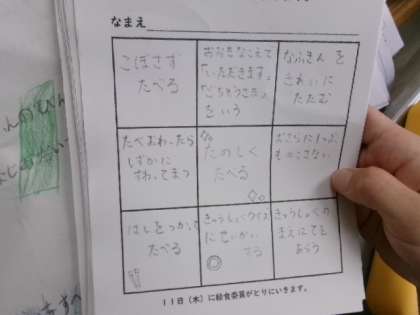 なまえ
こぼさず
たべる
おおきなこえで
「いただきます」
「ごちそうさま」
をいう
なふきんを
きれいに
たたむ
たべおわったら
しずかに
すわってまつ
たのしく
たべる
おさらに1つぶ
ものこさない
はしをつかって
たべる
きゅうしょくクイズ
にせいかい
する
きゅうしょくの
まえにてを
あらう
11日(木)に給食委員がとりにいきます。